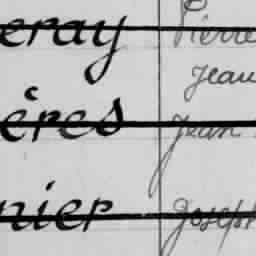 eray Pierre
Jean
ères Jean
nier Joseph